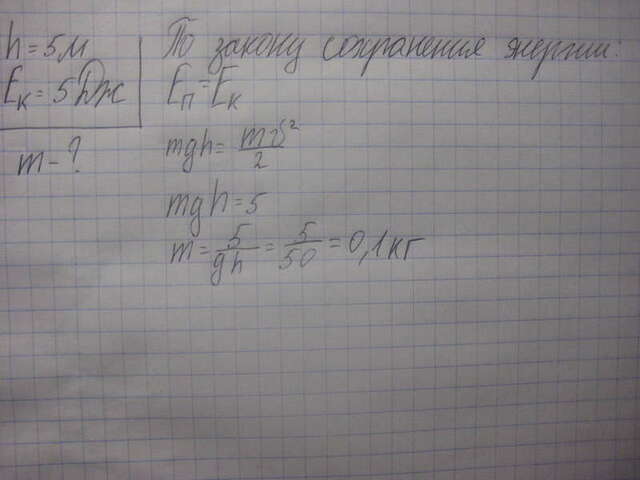 h = 5м
Eк = 5 Дж
m - ?
По закону сохранения энергии:
Eп = Eк
mgh = mv²/2
mgh = 5
m = 5/gh = 5/50 = 0,1 кг